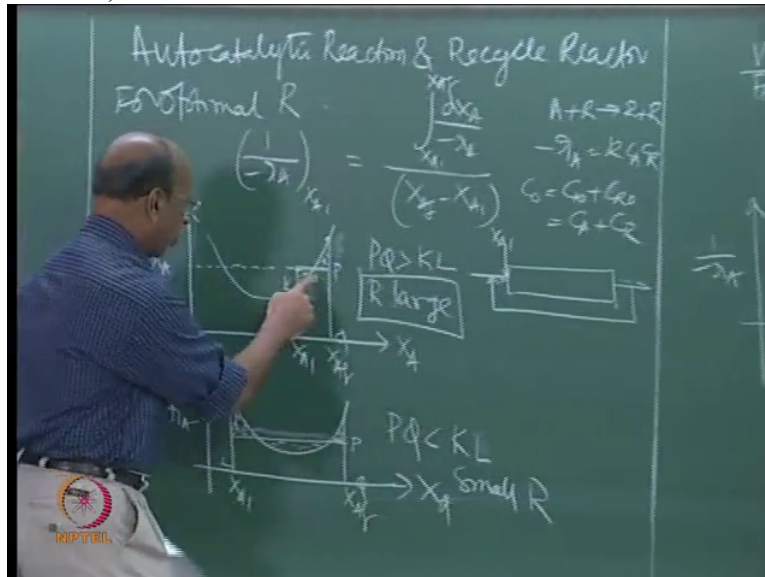 Autocatalytic Reaction & Recycle Reactor
For Optimal R
(1/-rA)XA1 = ∫XA1^XAf dXA/-rA / (XAf - XA1)
A+R→R+R
-rA = k CA CR
C0 = CA0 + CR0
= CA + CR
XA1
PQ > KL
R large
P
XA1 XAf XA
1/-rA
PQ < KL
P
Small R
XA1 XAf XA
NPTEL